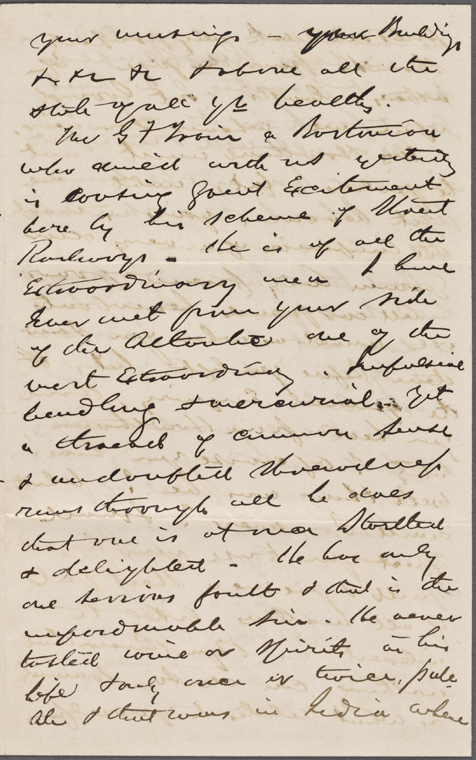 your musings – your Buildings
&c &c &c & above all the
state of all yr healths.
Mr G F Train a Bostonian
who dined with us yesterday
is causing great Excitement
here by his scheme of Street
Railways – He is of all the
Extraordinary men I have
Ever met from your side
of the Atlantic one of the
most Extraordinary. Impulsive
& mercurial. Yet
a thread of common sense
& undoubted Shrewdness
runs through all he does
that one is at once Startled
& delighted – He has only
one serious fault & that is the
unpardonable sin. He never
tasted wine or spirits in his
life & only once or twice, pale
ale & that was in India where